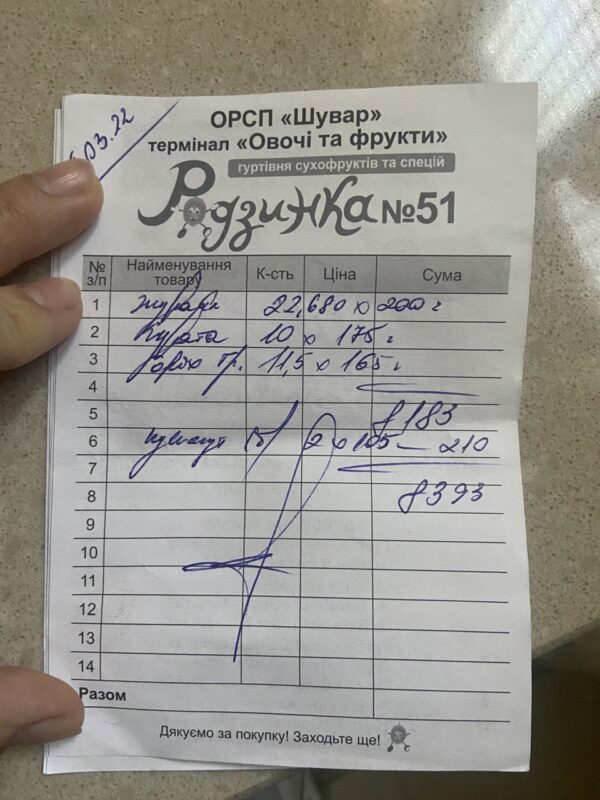 .03.22
ОРСП «Шувар»
термінал «Овочі та фрукти»
гуртівня сухофруктів та спецій
Родзинка №51
№ з/п Найменування товару К-сть Ціна Сума
1 22,680 х 200 г
2 Курага 10 х 175 г
3 Горіх гр. 11,5 х 165 г
4
5 8183
6 2 х 105 — 210
7
8 8393
9
10
11
12
13
14
Разом
Дякуємо за покупку! Заходьте ще!